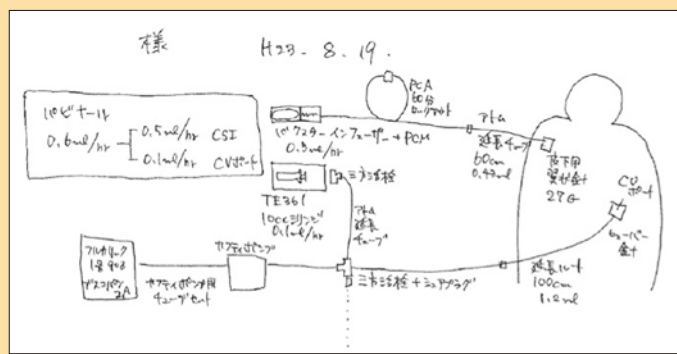 様 H23. 8. 19.
パビナール
0.6ml/hr
0.5ml/hr CSI
0.1ml/hr CVポート
PCA
60分
ロックアウト
バクスターインフューザー + PCM
0.5ml/hr
アトム
延長チューブ
60cm
0.43ml
皮下用
翼状針
27G
CV
ポート
ヒューバー
針
三方活栓
TE361
10ccシリンジ
0.1ml/hr
アトム
延長
チューブ
フルカリック
1号 903
ブスコパン
2A
カフティポンプ
カフティポンプ用
チューブセット
三方活栓 + シュアプラグ
延長ルート
100cm
1.2ml